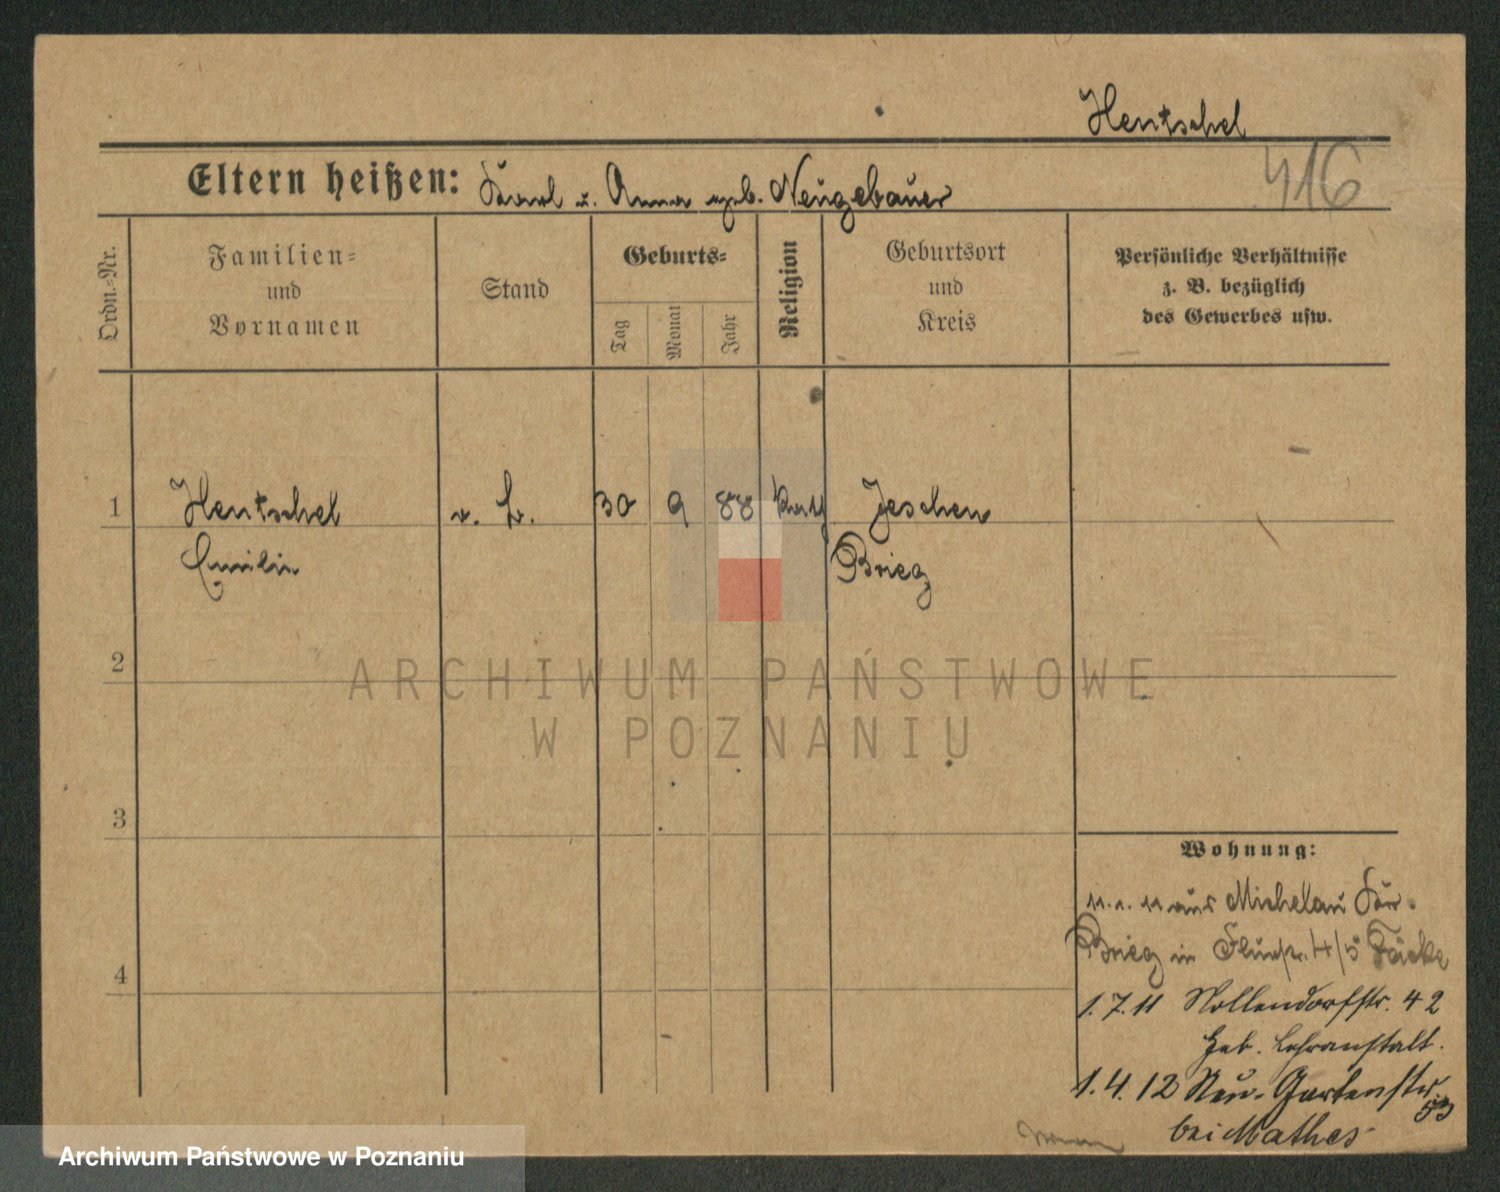 Hentschel
416
Eltern heißen: Karl u. Anna geb. Neugebauer
Ordn.-Nr.
Familien-
und
Vornamen
Stand
Geburts-
Tag
Monat
Jahr
Religion
Geburtsort
und
Kreis
Persönliche Verhältnisse
z. B. bezüglich
des Gewerbes usw.
1
Hentschel
o. B.
30
9
88
kath
Jeschen
Emilie
Brieg
2
ARCHIWUM PAŃSTWOWE
W POZNANIU
3
Wohnung:
11. 1. 11 aus Michelau Kr.
Brieg in 4/5
4
1.7.11 Nollendorfstr. 42
Heb. Lehranstalt.
1.4.12 Neu-Gartenstr.
53
bei Mathes
Archiwum Państwowe w Poznaniu